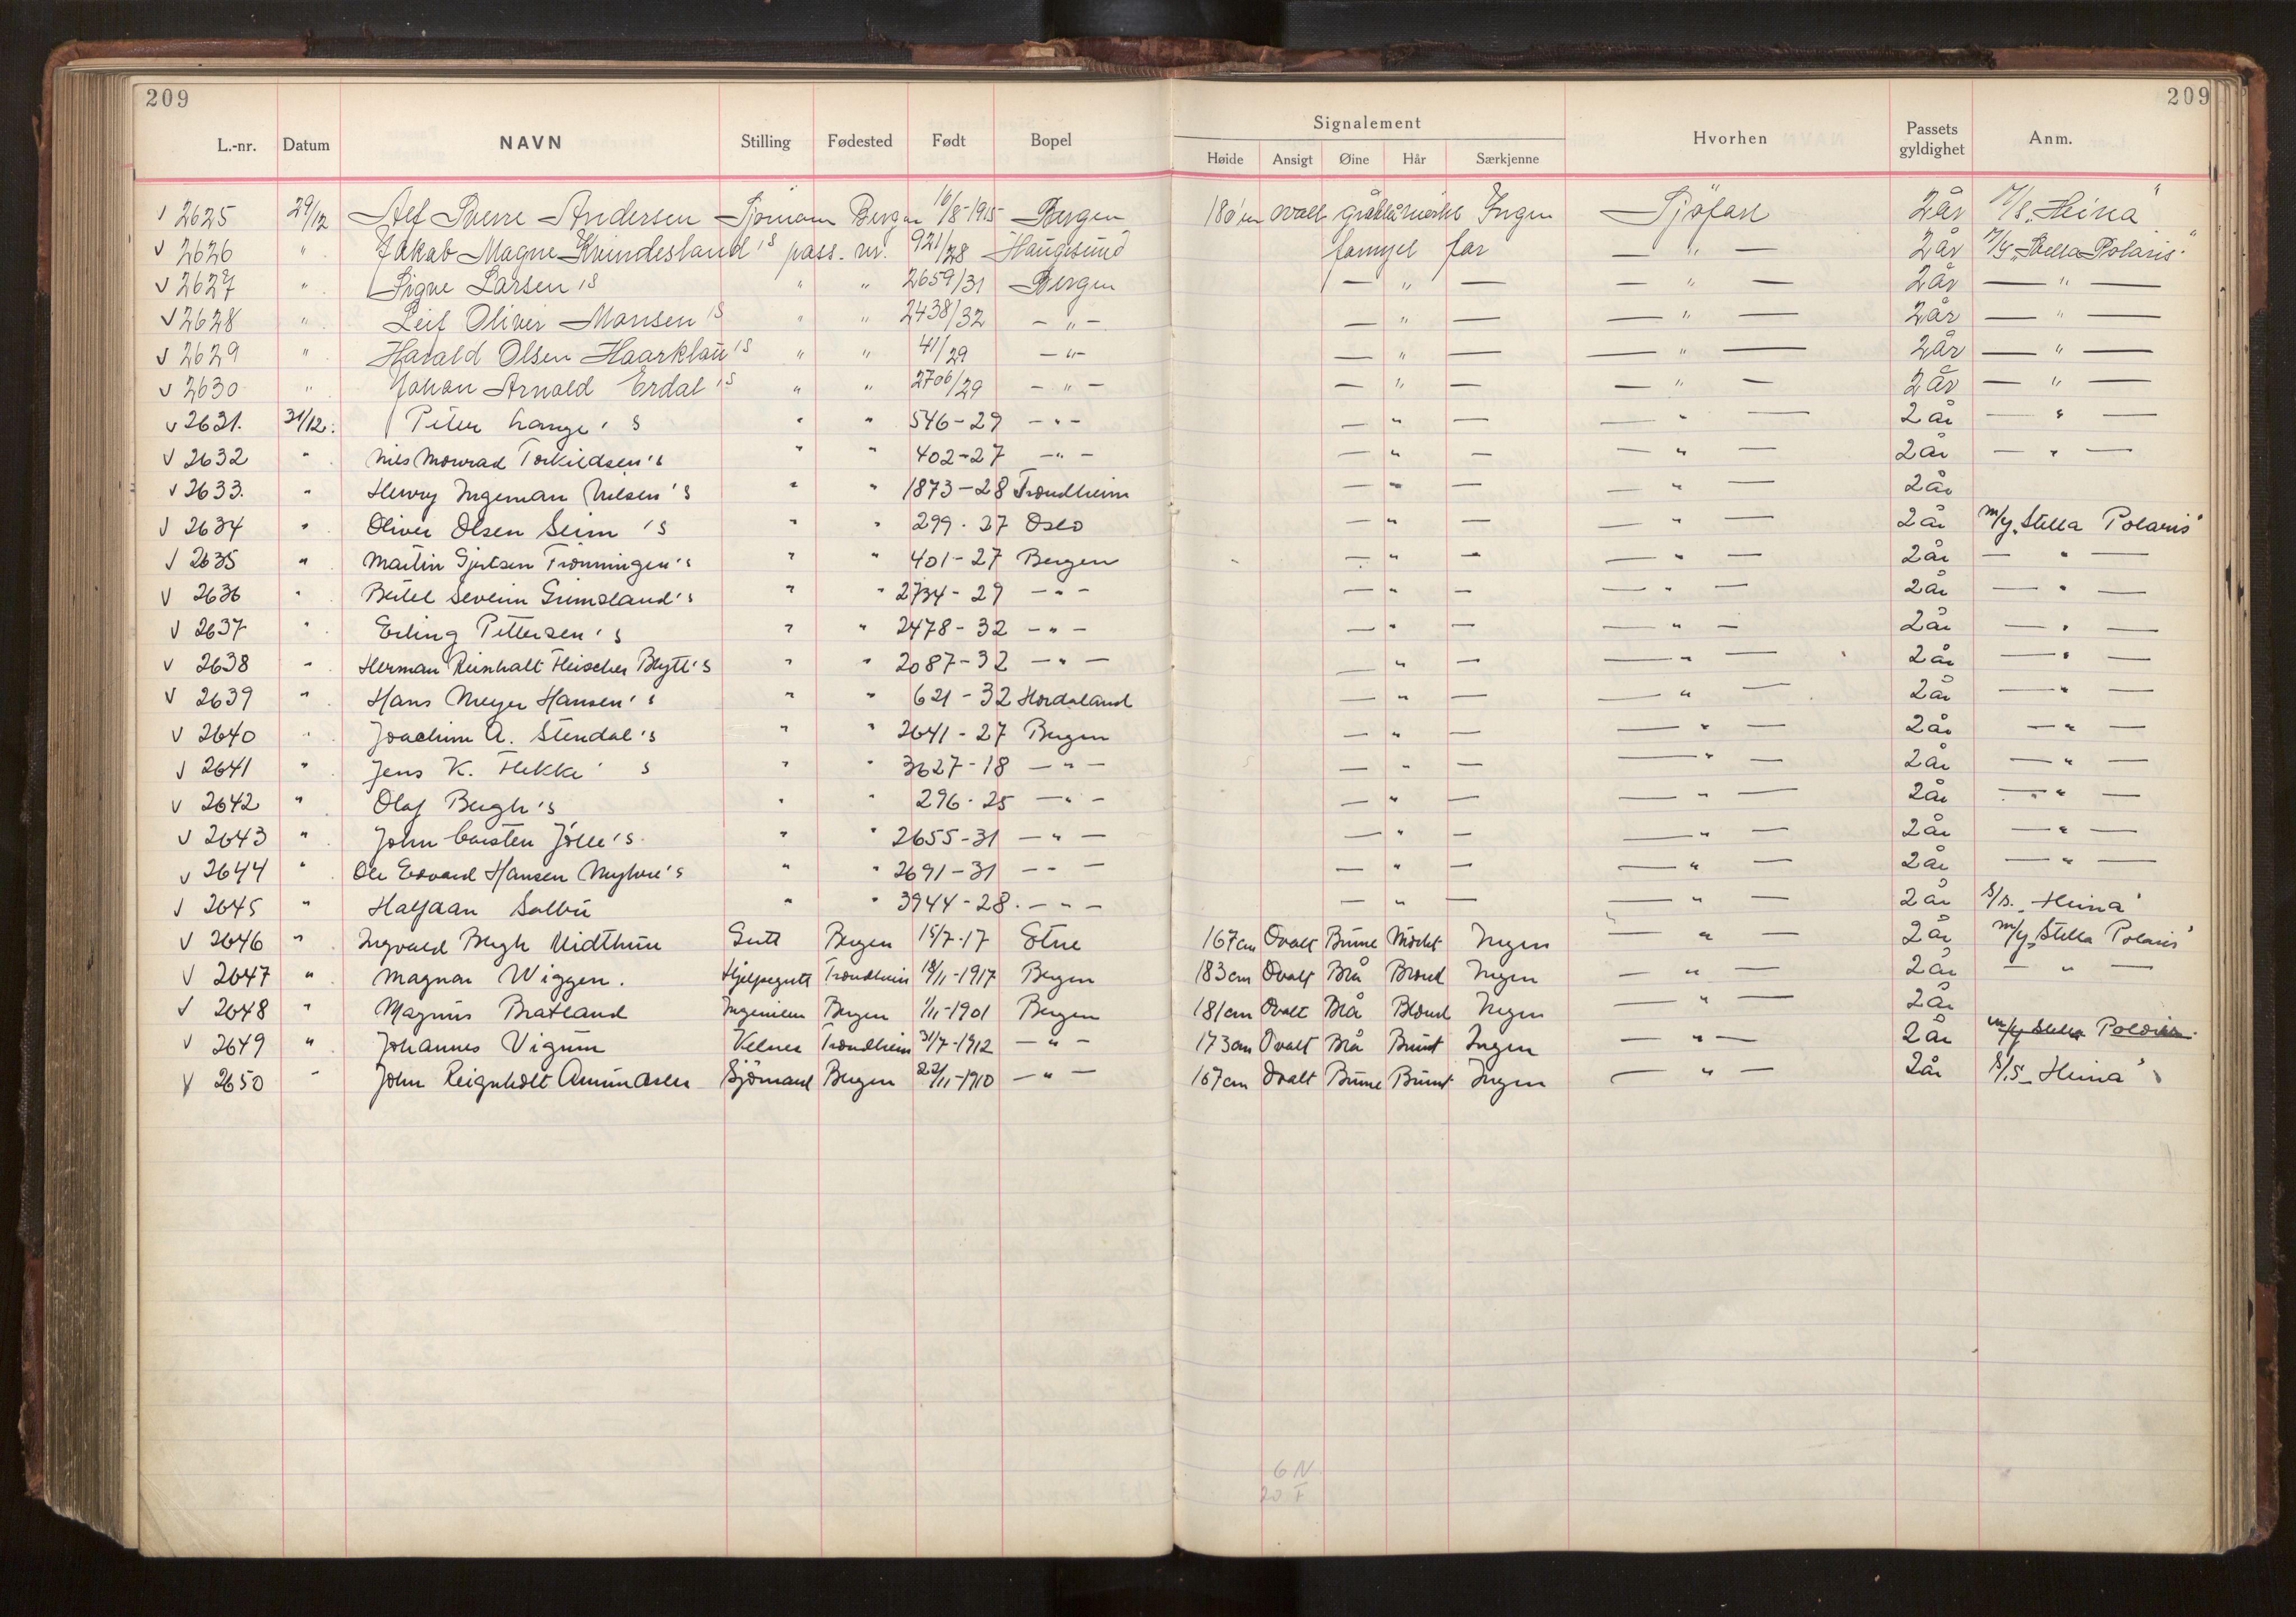 209 209
Signalement
L.-nr. Datum NAVN Stilling Fødested Født Bopel Høide Ansigt Øine Hår Særkjenne Hvorhen Passets gyldighet Anm.
√ 2625 29/12 Alf Sverre Andersen Sjömann Bergen 16/8-1915 Bergen 180 cm ovalt gråblå mörkt Ingen Sjöfart 2 år M/S. „Heina"
√ 2626 " Jakob Magne Kvindesland's pass. nr. 921/28 Haugesund fornyet for — " — 2 år M/Y „Stella Polaris"
√ 2627 " Signe Larsen's " " 2659/31 Bergen — " — — " — 2 år — " —
√ 2628 " Leif Oliver Monsen's " " 2438/32 — " — — " — — " — 2 år — " —
√ 2629 " Harald Olsen Haarklau's " " 41/29 — " — — " — — " — 2 år — " —
√ 2630 " Johan Arnold Erdal's " " 2706/29 — " — — " — — " — 2 år — " —
√ 2631. 31/12. Peter Lange's " " 546-29 — " — — " — — " — 2 år — " —
√ 2632 " Nils Monrad Torkildsen's " " 402-27 — " — — " — — " — 2 år — " —
√ 2633. " Henry Ingeman Nilsen's " " 1873-28 Trondheim — " — — " — 2 år
√ 2634 " Oliver Olsen Seim's " " 299-27 Oslo — " — — " — 2 år m/y „Stella Polaris"
√ 2635 " Martin Gjertsen Trønningen's " " 401-27 Bergen — " — — " — 2 år — " —
√ 2636 " Bertel Severin Grimsland's " " 2734-29 — " — — " — — " — 2 år — " —
√ 2637 " Erling Pettersen's " " 2478-32 — " — — " — — " — 2 år — " —
√ 2638 " Herman Reinholt Fleischer Blytt's " " 2087-32 — " — — " — — " — 2 år — " —
√ 2639 " Hans Meyer Hansen's " " 621-32 Hordaland — " — — " — 2 år — " —
√ 2640 " Joachim A. Stendal's " " 2641-27 Bergen — " — — " — 2 år — " —
√ 2641 " Jens K. Flekke's " " 3627-18 — " — — " — — " — 2 år — " —
√ 2642 " Olaf Bergh's " " 296-25 — " — — " — — " — 2 år — " —
√ 2643 " John Carsten Jølle's " " 2655-31 — " — — " — — " — 2 år — " —
√ 2644 " Ole Edvard Hansen " " 2691-31 — " — — " — — " — 2 år — " —
√ 2645 " Halfdan Solbu " " 3944-28. — " — — " — — " — 2 år S/S. „Heina"
√ 2646 " Ingvald Bergh Midthun Gutt Bergen 15/7-17 Etne 167 cm Ovalt Brune Mörkt Ingen — " — 2 år m/y „Stella Polaris"
√ 2647 " Magnar Wiggen. Hjelpegutt Trondheim 18/11-1917 Bergen 183 cm Ovalt Blå Blond Ingen — " — 2 år — " —
√ 2648 " Magnus Bratland Ingeniør Bergen 1/11-1901 Bergen 181 cm Ovalt Blå Blond Ingen — " — 2 år
√ 2649 " Johannes Vigum Kelner Trondheim 31/7-1912 — " — 173 cm Ovalt Blå Brunt Ingen — " — 2 år m/y Stella Polaris
√ 2650 " John Reignholt Amundsen Sjömand Bergen 22/11-1910 — " — 167 cm Ovalt Brune Brunt Ingen — " — 2 år S/S „Heina"
6 N
20 F